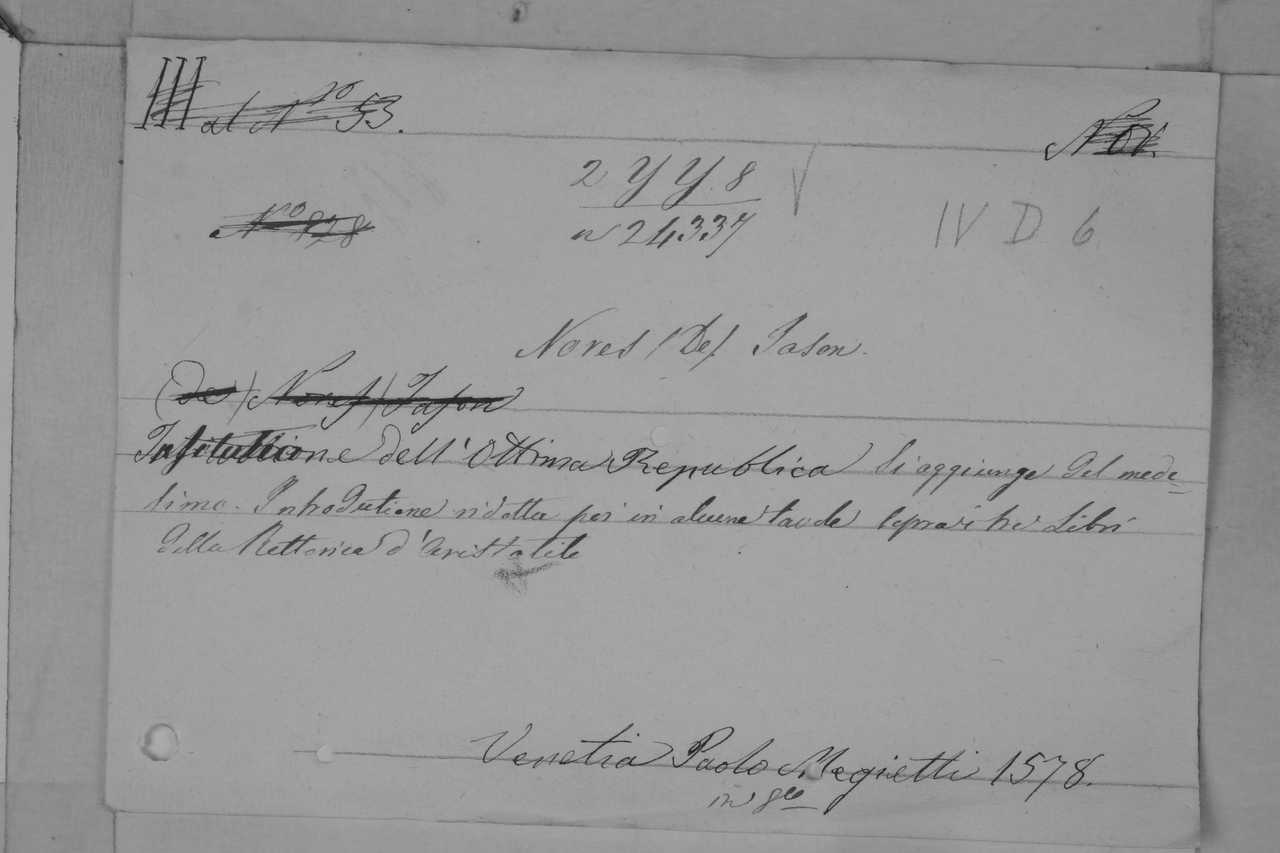 III al No 53.
Nor.
2 YY. 8
No 828
n 24337
IV D 6
Nores (De) Jason.
(de) Nores) Jason
Institutione dell' Ottima Republica Si aggiunge del mede=
simo. Introdutione ridotta poi in alcune tavole sopra i tre Libri
della Rettorica d'Aristotile
Venetia Paolo Megietti 1578.
in 8vo